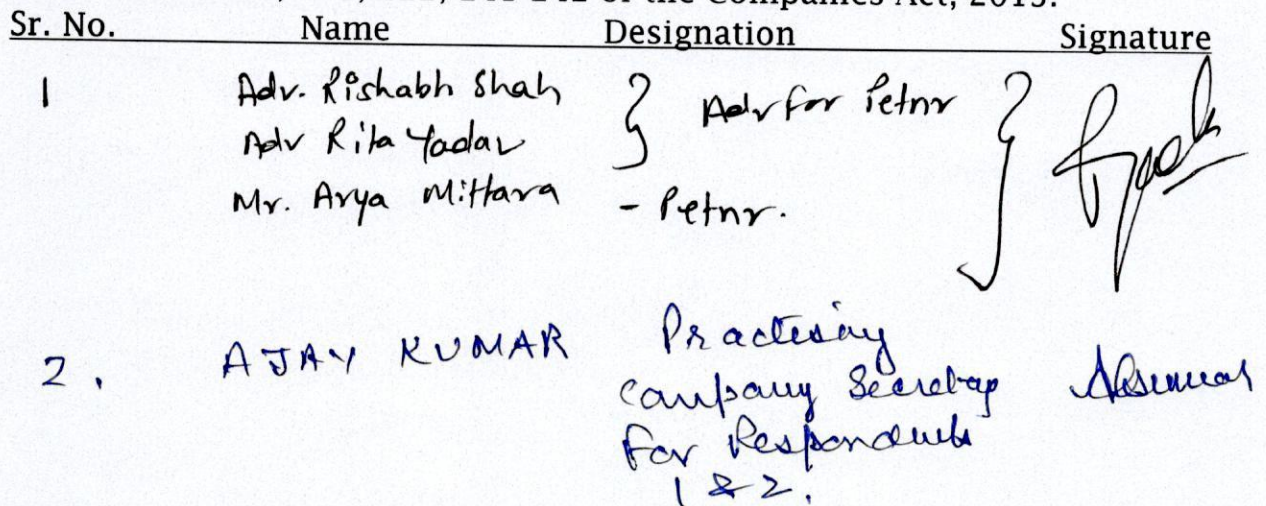 of the Companies Act, 2013.
Sr. No. Name Designation Signature
1 Adv. Rishabh Shah } Adv for Petnr }
Adv Rita Yadav
Mr. Arya Mittara - Petnr.
2. AJAY KUMAR Practising
Company Secretary
For Respondents
1 & 2.